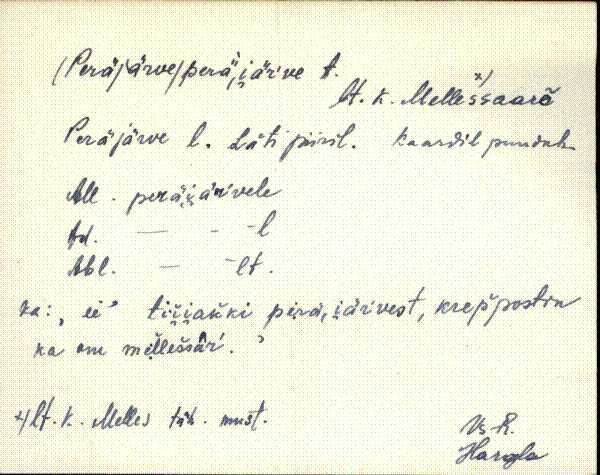 (Peräjärve) perä,i̯ärve t.
lt. k. Mellessaarõ x)
Peräjärve l. Läti piiril. Kaardil puudub.
All. perä,i̯ärvele
Ad. — - -l
Abl. — -lt.
ka: „ ei perä,i̯ärvest, kreppostin
ka om
x) lt. k. Melles täh. must.
Vs-R.
Hargla